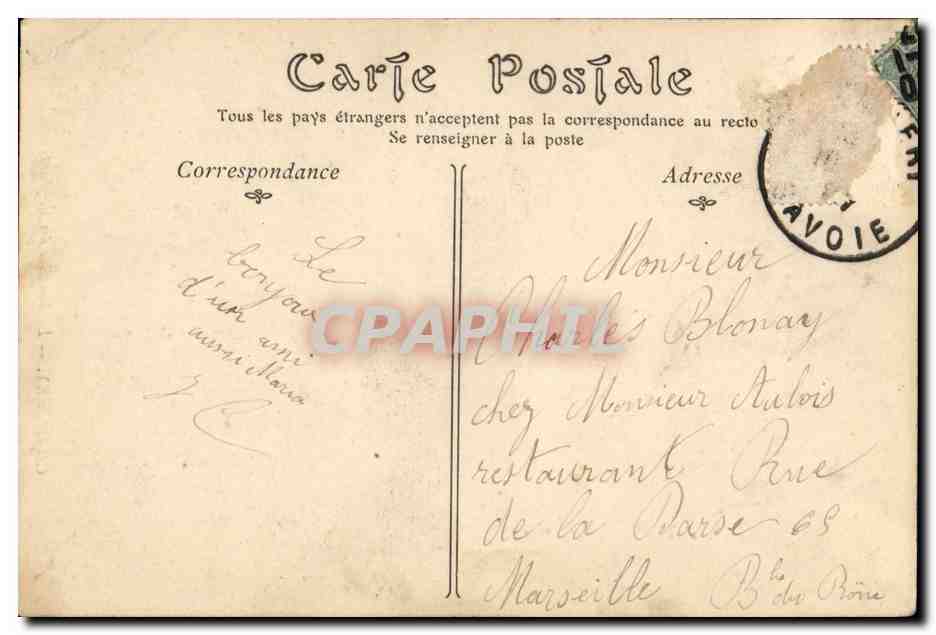 Carte Postale
Tous les pays étrangers n'acceptent pas la correspondance au recto
Se renseigner à la poste
Correspondance
Adresse
AVOIE
Le
bonjour
d'un ami
aussi Maria
Monsieur
Charles Blonay
chez Monsieur Aulois
restaurant Rue
de la Darse 69
Marseille Bhe du Rône
CPAPHIL